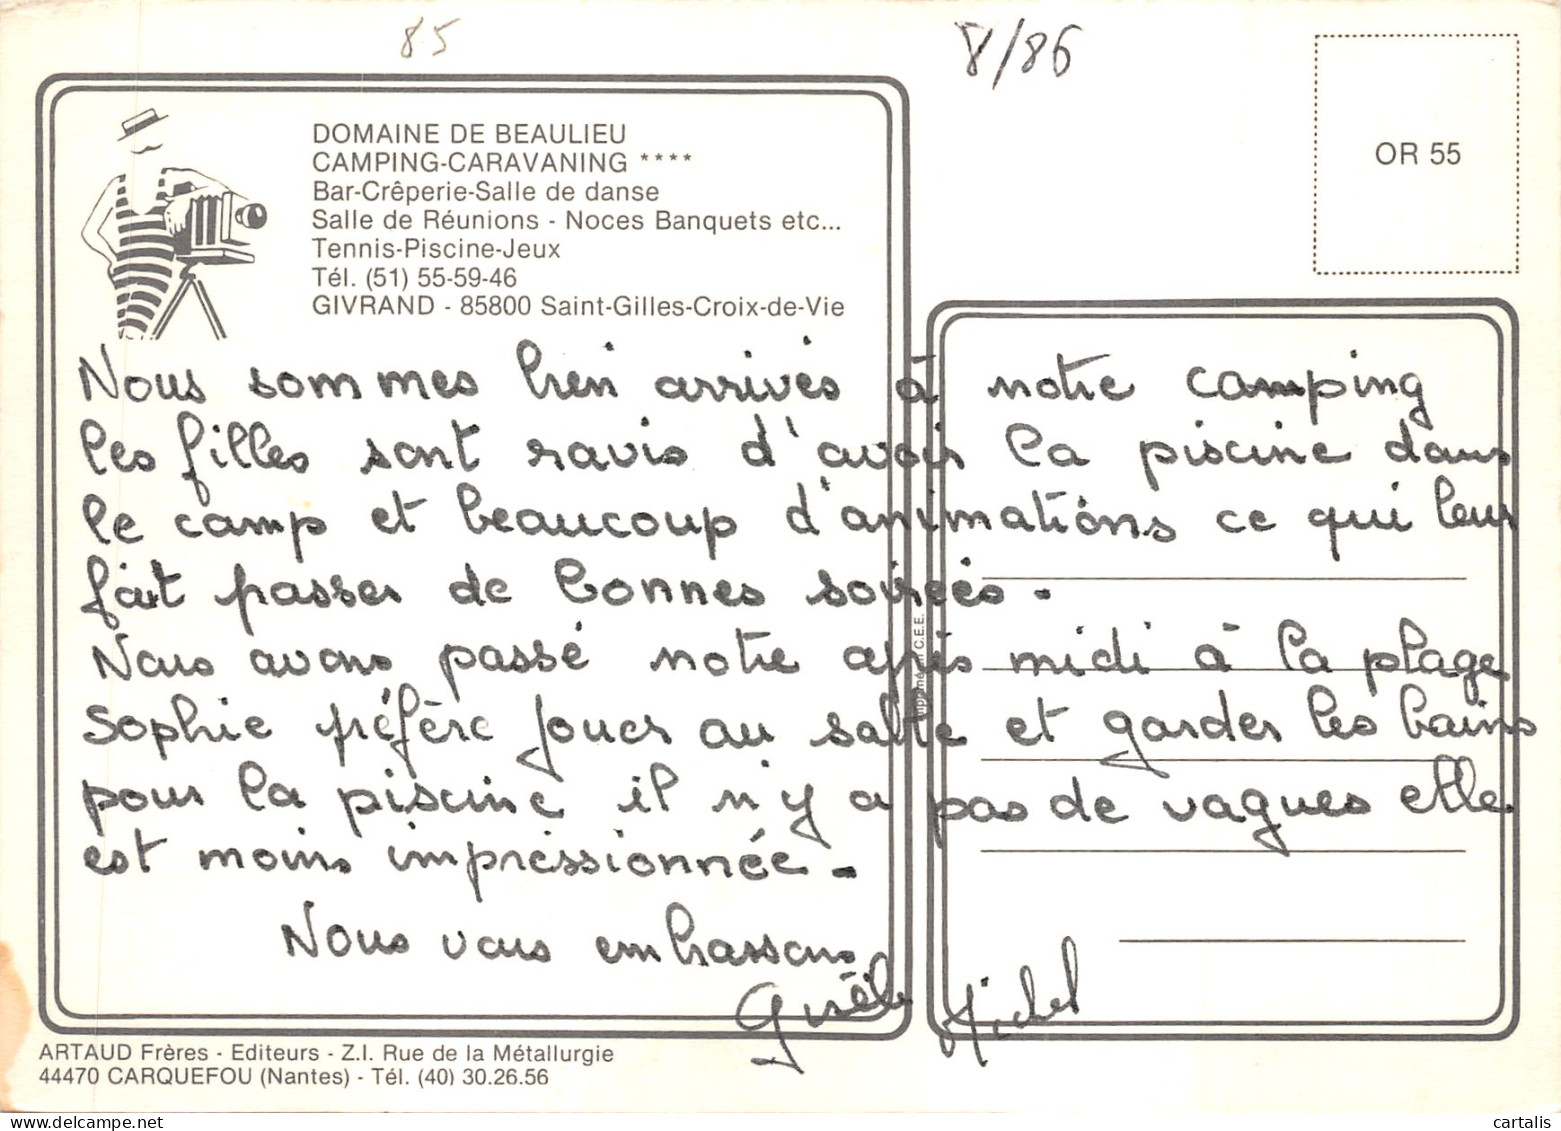 85
8/86
DOMAINE DE BEAULIEU
CAMPING-CARAVANING ****
Bar-Crêperie-Salle de danse
Salle de Réunions - Noces Banquets etc...
Tennis-Piscine-Jeux
Tél. (51) 55-59-46
GIVRAND - 85800 Saint-Gilles-Croix-de-Vie
OR 55
Nous sommes bien arrivés à notre camping
les filles sont ravis d'avoir la piscine dans
le camp et beaucoup d'animations ce qui leur
fait passer de bonnes soirées.
Nous avons passé notre après midi à la plage
Sophie préfère jouer au sable et garder les bains
pour la piscine il n'y a pas de vagues elle
est moins impressionnée.
Nous vous embrassons
Gisèle Michel
C.E.E.
ARTAUD Frères - Editeurs - Z.I. Rue de la Métallurgie
44470 CARQUEFOU (Nantes) - Tél. (40) 30.26.56
cartalis